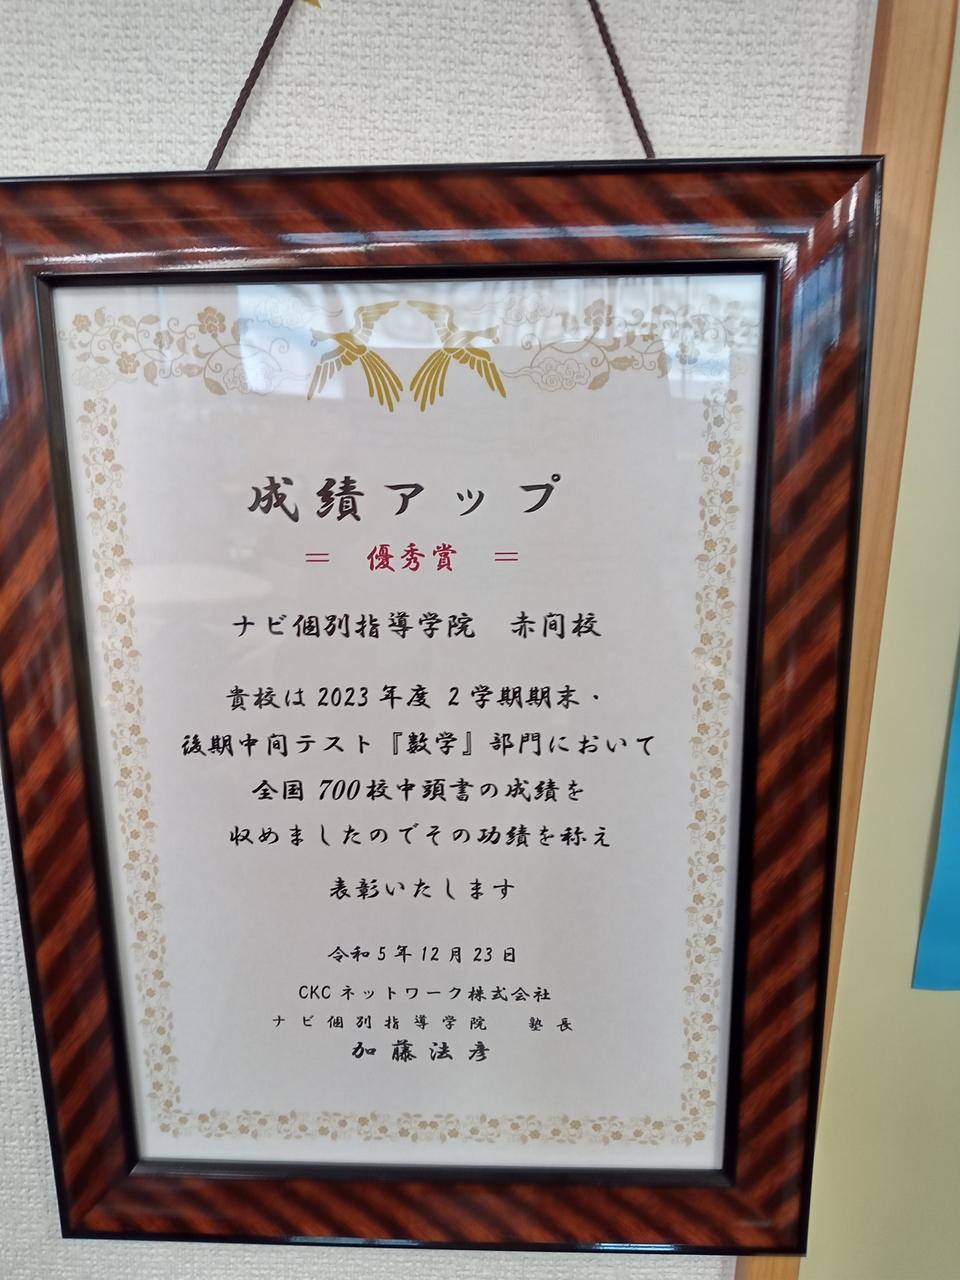 成績アップ
＝ 優秀賞 ＝
ナビ個別指導学院 赤間校
貴校は 2023 年度 2 学期期末・
後期中間テスト『数学』部門において
全国 700校中頭書の成績を
収めましたのでその功績を称え
表彰いたします
令和 5 年 12 月 23 日
CKC ネットワーク株式会社
ナビ個別指導学院 塾長
加藤法彦